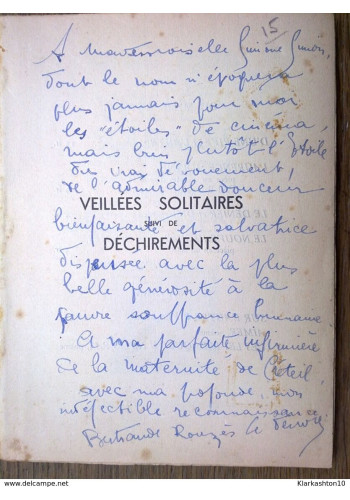 15
A Mademoiselle Simone Simon,
dont le nom n'évoquera
plus jamais pour moi
les "étoiles" de cinéma,
mais bien plutôt l'étoile
du vrai dévouement,
de l'admirable douceur
VEILLÉES SOLITAIRES
bienfaisante et salvatrice
SUIVI DE
DÉCHIREMENTS
dispensée avec la plus
belle générosité à la
pauvre souffrance humaine
A ma parfaite infirmière
de la maternité de Créteil,
avec ma profonde, mon
indéfectible reconnaissance
Bertrande Rouzès
Klarkashton31 @ www.delcampe.net